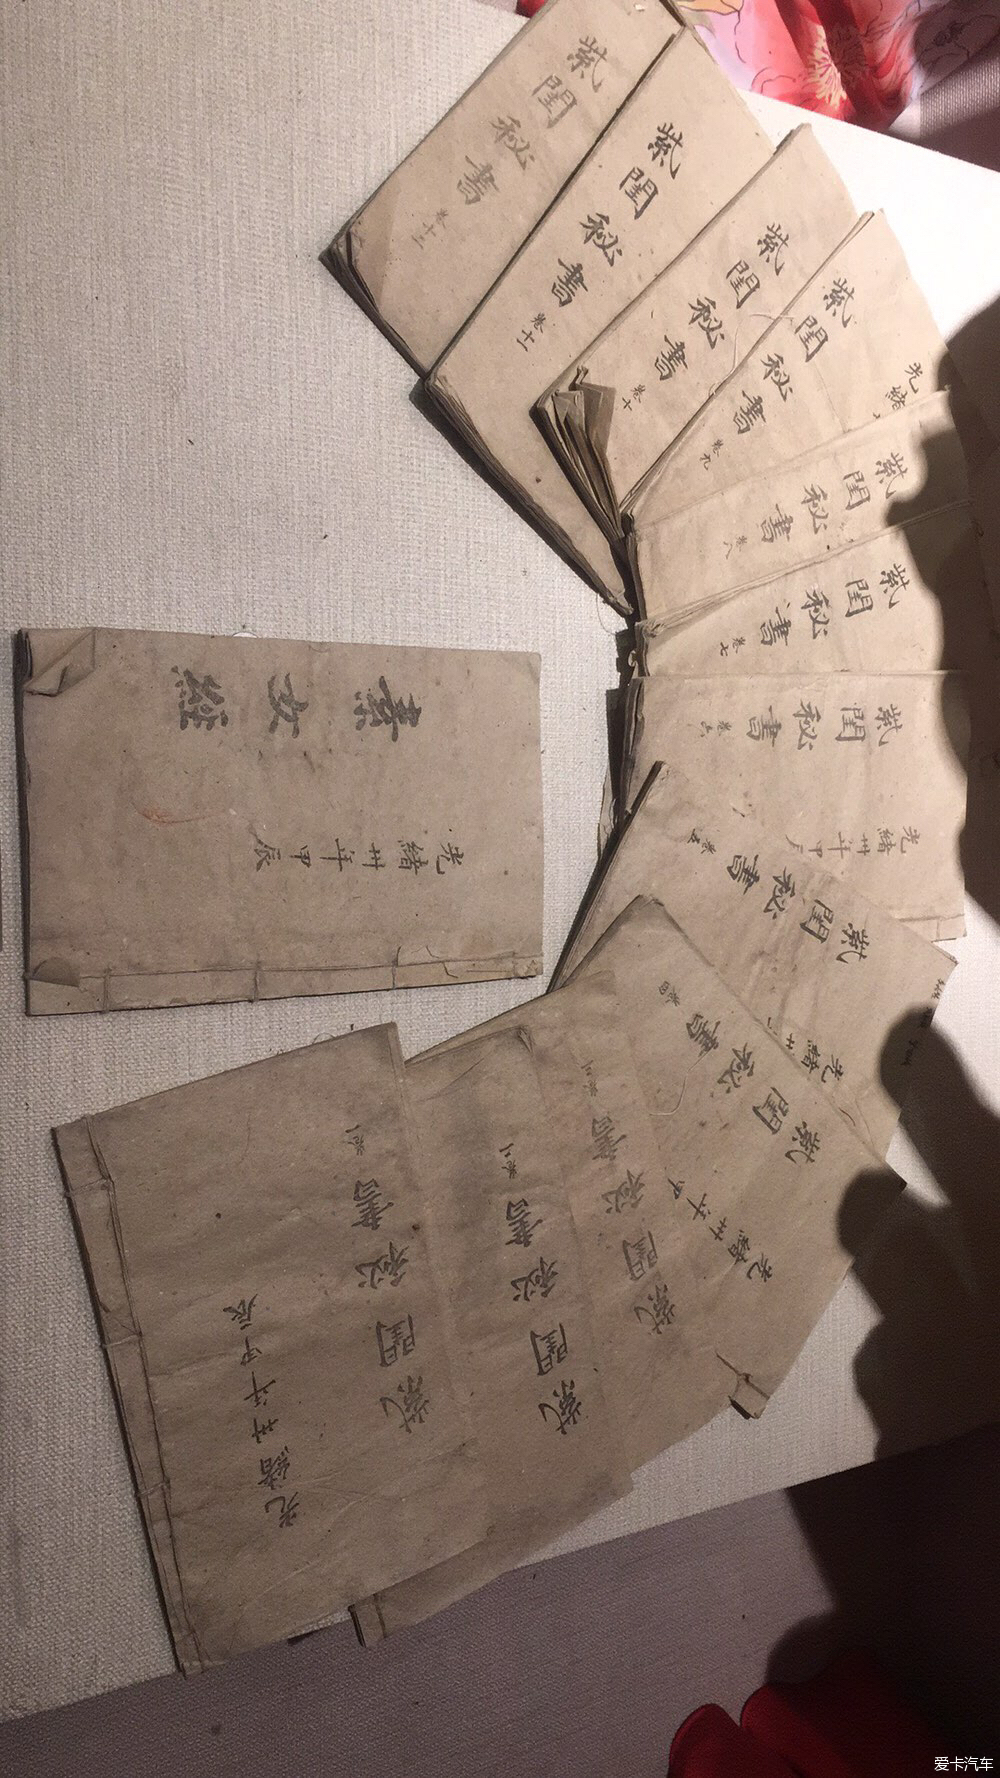 素女經
光緒卅年甲辰
紫閨秘書 卷一
光緒卅年甲辰
紫閨秘書 卷二
紫閨秘書 卷三
紫閨秘書 卷四
光緒卅年甲
紫閨秘書 卷五
光緒卅
紫閨秘書 卷六
光緒卅年甲辰
紫閨秘書 卷七
紫閨秘書 卷八
紫閨秘書 卷九
光緒
紫閨秘書 卷十
紫閨秘書 卷十一
紫閨秘書 卷十二
爱卡汽车